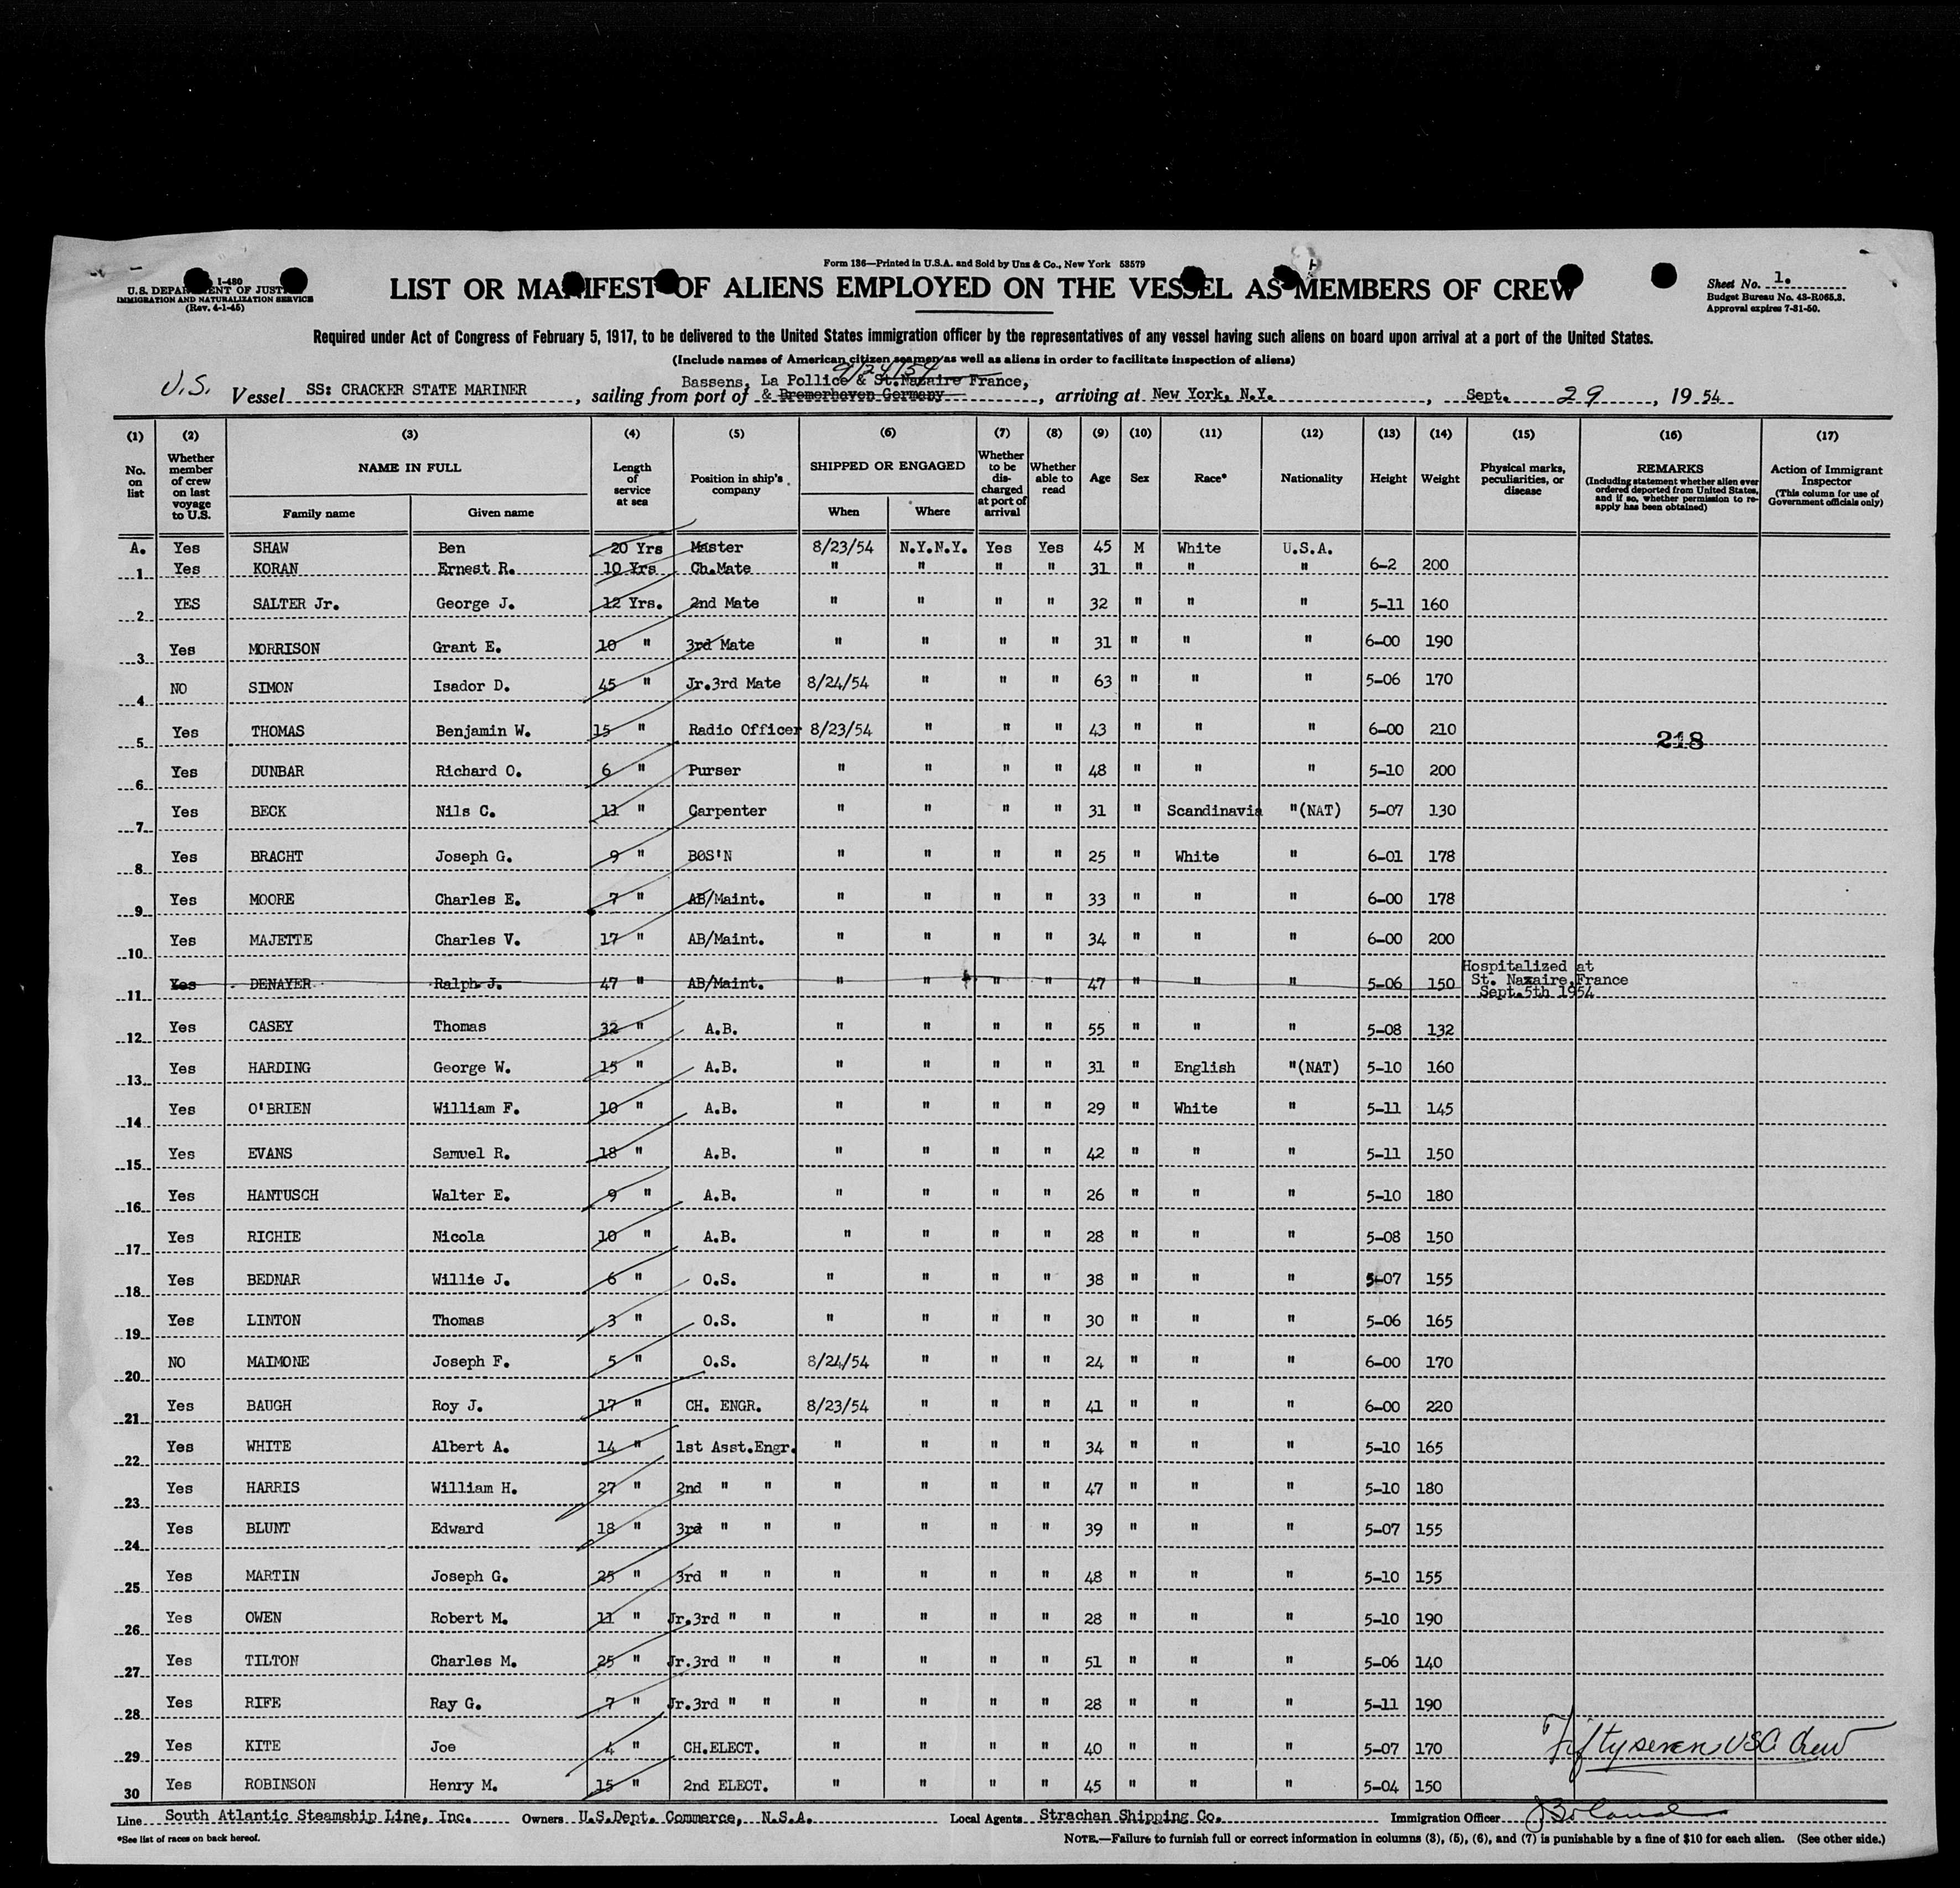 Form 136—Printed in U.S.A. and Sold by Unz & Co., New York 53579
1-480
U.S. DEPARTMENT OF JUSTICE
IMMIGRATION AND NATURALIZATION SERVICE
(Rev. 4-1-45)
LIST OR MANIFEST OF ALIENS EMPLOYED ON THE VESSEL AS MEMBERS OF CREW
Sheet No. 1.
Budget Bureau No. 43-R065.3.
Approval expires 7-31-50.
Required under Act of Congress of February 5, 1917, to be delivered to the United States immigration officer by the representatives of any vessel having such aliens on board upon arrival at a port of the United States.
(Include names of American citizen seamen as well as aliens in order to facilitate inspection of aliens)
9/24/54
Bassens, La Pollice & St.Nazaire France,
U.S. Vessel SS: CRACKER STATE MARINER, sailing from port of & Bremerhaven Germany, arriving at New York, N.Y., Sept. 29, 1954
(1) (2) (3) (4) (5) (6) (7) (8) (9) (10) (11) (12) (13) (14) (15) (16) (17)
No. on list
Whether member of crew on last voyage to U.S.
NAME IN FULL
Family name Given name
Length of service at sea
Position in ship's company
SHIPPED OR ENGAGED
When Where
Whether to be discharged at port of arrival
Whether able to read
Age
Sex
Race*
Nationality
Height
Weight
Physical marks, peculiarities, or disease
REMARKS
(Including statement whether alien ever ordered deported from United States, and if so, whether permission to reapply has been obtained)
Action of Immigrant Inspector
(This column for use of Government officials only)
A. Yes SHAW Ben 20 Yrs Master 8/23/54 N.Y.N.Y. Yes Yes 45 M White U.S.A.
1 Yes KORAN Ernest R. 10 Yrs Ch.Mate " " " " 31 " " " 6-2 200
2 YES SALTER Jr. George J. 12 Yrs. 2nd Mate " " " " 32 " " " 5-11 160
3 Yes MORRISON Grant E. 10 " 3rd Mate " " " " 31 " " " 6-00 190
4 NO SIMON Isador D. 45 " Jr.3rd Mate 8/24/54 " " " 63 " " " 5-06 170
5 Yes THOMAS Benjamin W. 15 " Radio Officer 8/23/54 " " " 43 " " " 6-00 210 218
6 Yes DUNBAR Richard O. 6 " Purser " " " " 48 " " " 5-10 200
7 Yes BECK Nils C. 11 " Carpenter " " " " 31 " Scandinavia "(NAT) 5-07 130
8 Yes BRACHT Joseph G. 9 " BOS'N " " " " 25 " White " 6-01 178
9 Yes MOORE Charles E. 7 " AB/Maint. " " " " 33 " " " 6-00 178
10 Yes MAJETTE Charles V. 17 " AB/Maint. " " " " 34 " " " 6-00 200
11 Yes DENAYER Ralph J. 47 " AB/Maint. " " " " 47 " " " 5-06 150 Hospitalized at St. Nazaire,France Sept.5th 1954
12 Yes CASEY Thomas 32 " A.B. " " " " 55 " " " 5-08 132
13 Yes HARDING George W. 15 " A.B. " " " " 31 " English "(NAT) 5-10 160
14 Yes O'BRIEN William F. 10 " A.B. " " " " 29 " White " 5-11 145
15 Yes EVANS Samuel R. 18 " A.B. " " " " 42 " " " 5-11 150
16 Yes HANTUSCH Walter E. 9 " A.B. " " " " 26 " " " 5-10 180
17 Yes RICHIE Nicola 10 " A.B. " " " " 28 " " " 5-08 150
18 Yes BEDNAR Willie J. 6 " O.S. " " " " 38 " " " 5-07 155
19 Yes LINTON Thomas 3 " O.S. " " " " 30 " " " 5-06 165
20 NO MAIMONE Joseph F. 5 " O.S. 8/24/54 " " " 24 " " " 6-00 170
21 Yes BAUGH Roy J. 17 " CH. ENGR. 8/23/54 " " " 41 " " " 6-00 220
22 Yes WHITE Albert A. 14 " 1st Asst.Engr. " " " " 34 " " " 5-10 165
23 Yes HARRIS William H. 27 " 2nd " " " " " " 47 " " " 5-10 180
24 Yes BLUNT Edward 18 " 3rd " " " " " " 39 " " " 5-07 155
25 Yes MARTIN Joseph G. 25 " 3rd " " " " " " 48 " " " 5-10 155
26 Yes OWEN Robert M. 11 " Jr.3rd " " " " " " 28 " " " 5-10 190
27 Yes TILTON Charles M. 25 " Jr.3rd " " " " " " 51 " " " 5-06 140
28 Yes RIFE Ray G. 7 " Jr.3rd " " " " " " 28 " " " 5-11 190
29 Yes KITE Joe 4 " CH.ELECT. " " " " 40 " " " 5-07 170 Fifty seven USC Crew
30 Yes ROBINSON Henry M. 15 " 2nd ELECT. " " " " 45 " " " 5-04 150
Line South Atlantic Steamship Line, Inc. Owners U.S.Dept. Commerce, N.S.A. Local Agents Strachan Shipping Co. Immigration Officer JBoland
*See list of races on back hereof.
NOTE.—Failure to furnish full or correct information in columns (3), (5), (6), and (7) is punishable by a fine of $10 for each alien. (See other side.)